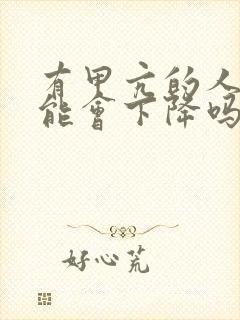 有甲亢的人
能會下降吗
好心荒